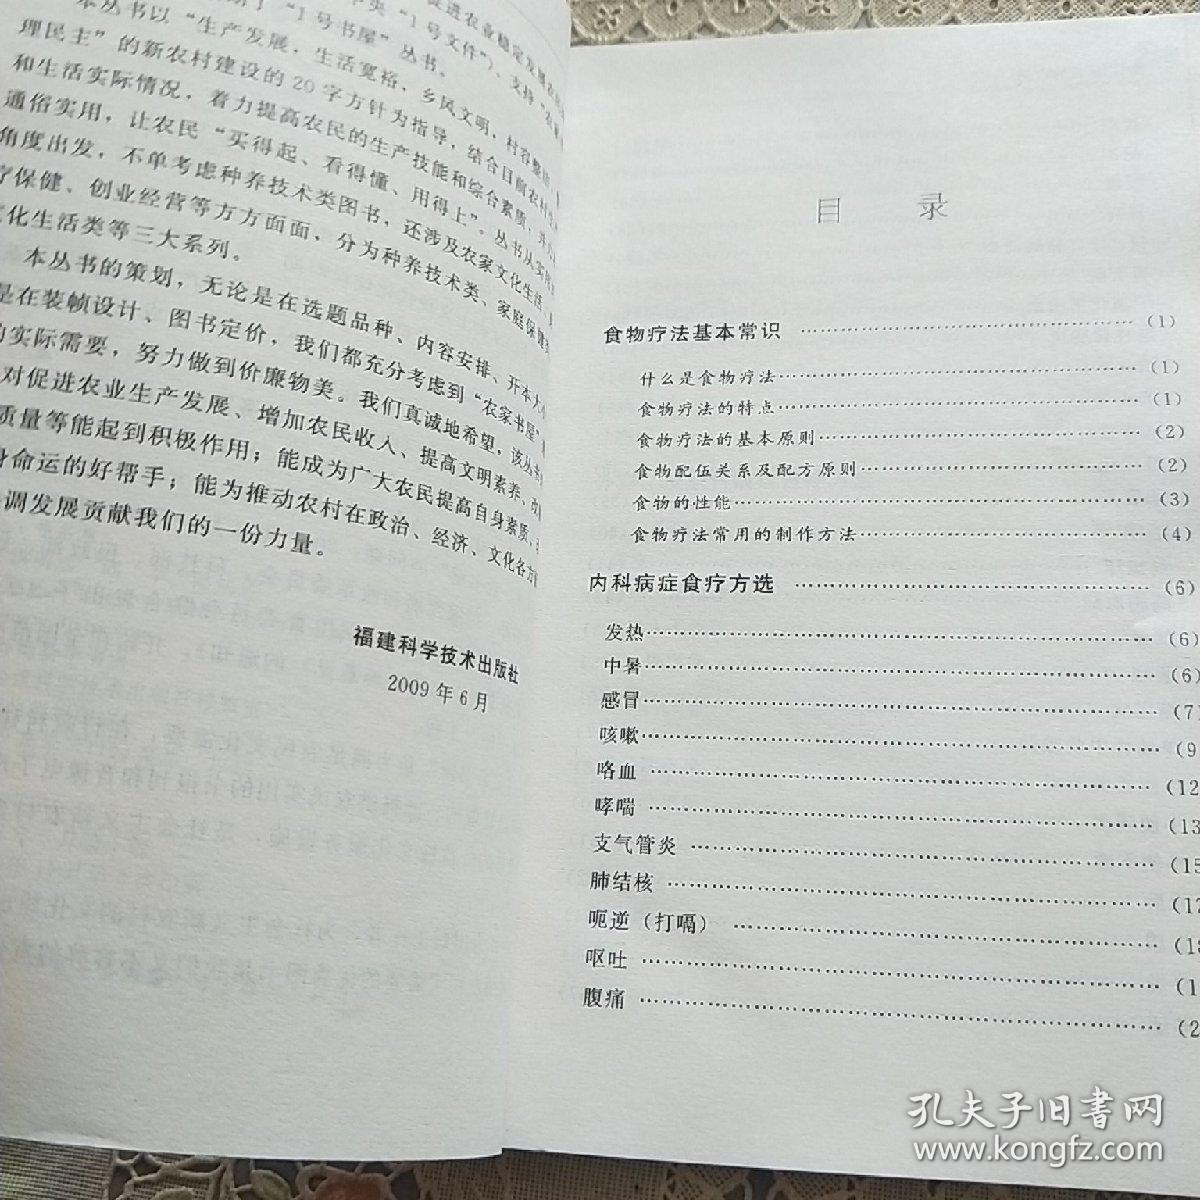 "1号书屋"丛书。
本丛书以"生产发展，生活宽裕，乡风文明，村容整
理民主"的新农村建设的20字方针为指导，结合目前农村
和生活实际情况，着力提高农民的生产技能和综合素质，并
通俗实用，让农民"买得起、看得懂、用得上"。丛书从实
角度出发，不单考虑种养技术类图书，还涉及农家文化生活、
疗保健、创业经营等方方面面，分为种养技术类、家庭保健
文化生活类等三大系列。
本丛书的策划，无论是在选题品种、内容安排、开本大小
是在装帧设计、图书定价，我们都充分考虑到"农家书屋"
的实际需要，努力做到价廉物美。我们真诚地希望，该丛书
对促进农业生产发展、增加农民收入、提高文明素养、改
质量等能起到积极作用；能成为广大农民提高自身素质、
身命运的好帮手；能为推动农村在政治、经济、文化各方
调发展贡献我们的一份力量。
福建科学技术出版社
2009年6月
目 录
食物疗法基本常识 ……………………………………（1）
什么是食物疗法……………………………………（1）
食物疗法的特点……………………………………（1）
食物疗法的基本原则………………………………（2）
食物配伍关系及配方原则…………………………（2）
食物的性能…………………………………………（3）
食物疗法常用的制作方法…………………………（4）
内科病症食疗方选 ……………………………………（6）
发热…………………………………………………（6）
中暑…………………………………………………（6）
感冒…………………………………………………（7）
咳嗽…………………………………………………（9
咯血 …………………………………………………（12
哮喘 …………………………………………………（13
支气管炎 ……………………………………………（15
肺结核 ………………………………………………（17
呃逆（打嗝） ………………………………………（18
呕吐 …………………………………………………（1
腹痛 …………………………………………………（2
孔夫子旧书网
www.kongfz.com